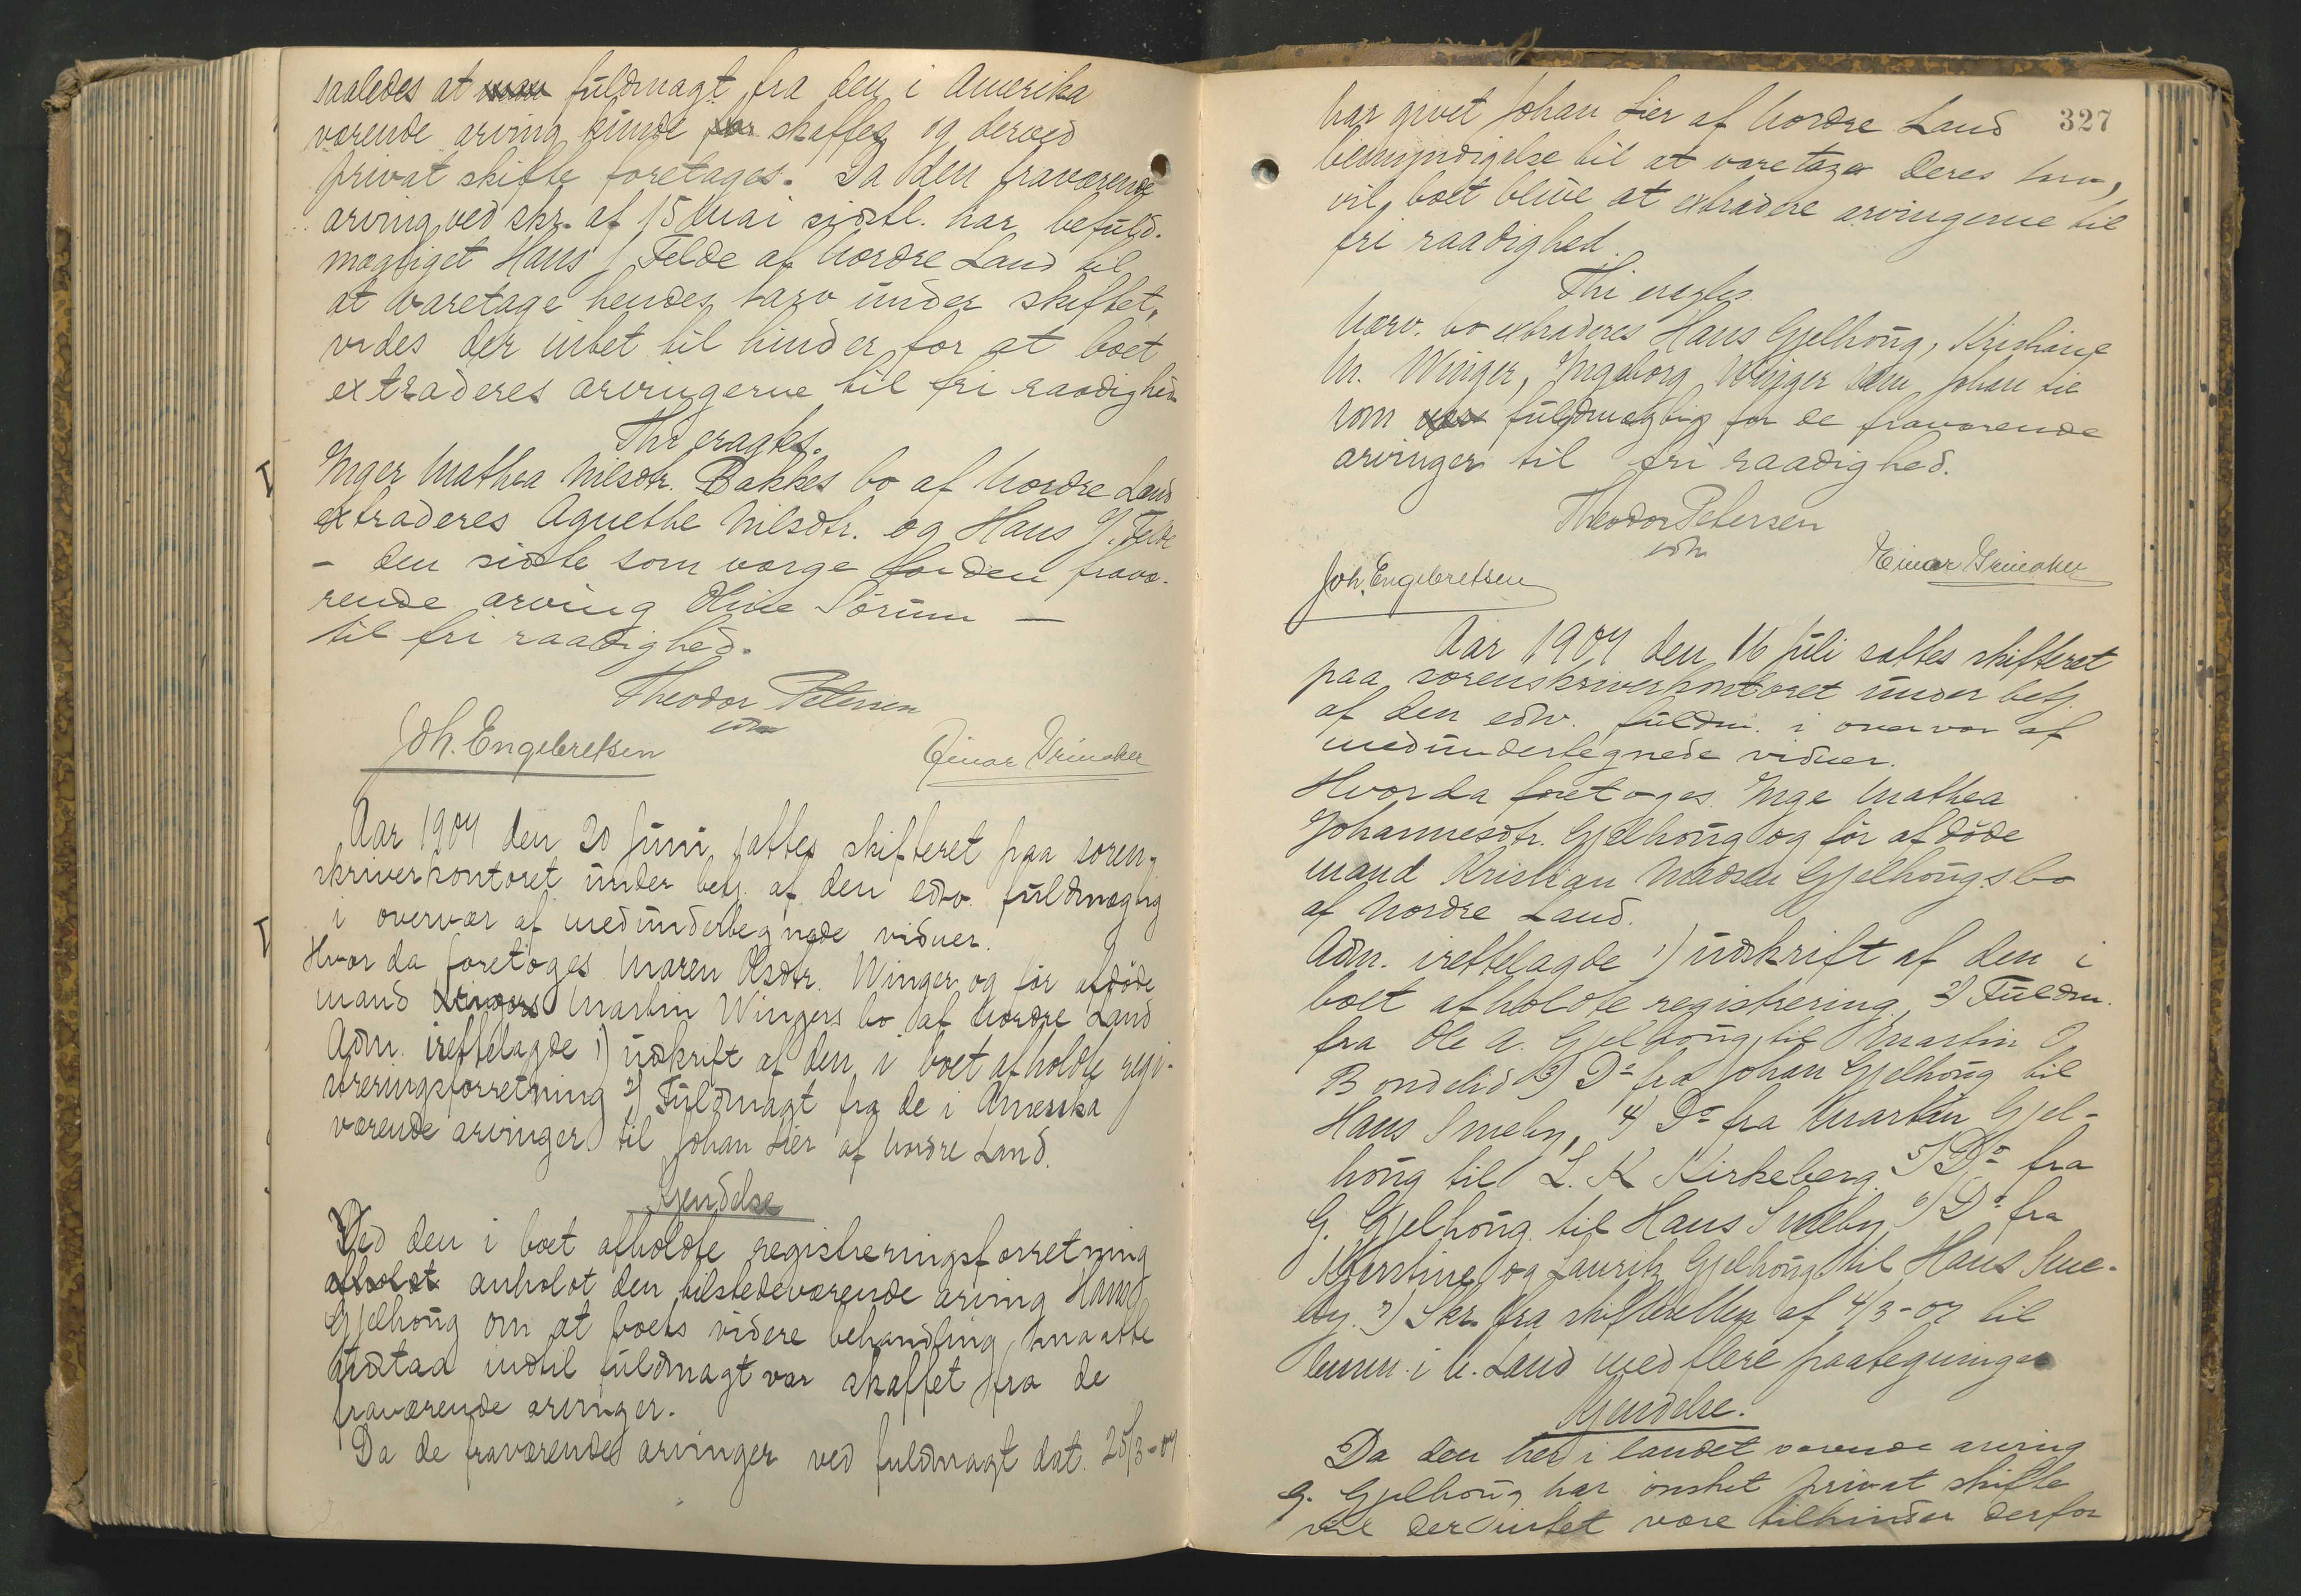 saaledes at man fuldmagt fra den i Amerika
værende arving kunde for skaffes og derved
privat skifte foretages. Da den fraværende
arving ved skr. af 15 Mai sidstl. har befuld-
mægtiget Hans J Felde af Nordre Land til
at varetage hendes tarv under skiftet,
vides der intet til hinder for at boet
extraderes arvingerne til fri raadighed
Thi eragtes.
Inger Mathea Nilsdtr. Bakkes bo af Nordre Land
extraderes Agnethe Nilsdtr. og Hans J. Felde
- den sidste som værge for den fravæ-
rende arving Oline Sörum -
til fri raadighed.
Theodor Petersen
edv
Joh. Engebretsen
Einar Grinaker
Aar 1907 den 20 Juni sattes skifteret paa soren-
skriverkontoret under bety. af den edsv. fuldmægtig
i overvær af medundertegnede vidner.
Hvor da foretoges Maren Olsdtr. Winger og för afdöde
mand Martin Wingers bo af Nordre Land
Adm. irettelagde 1) udskrift af den i boet afholdte regi-
streringsforretning 2) Fuldmagt fra de i Amerika
værende arvinger til Johan Lier af Nordre Land.
Kjendelse
Ved den i boet afholdte registreringsforretning
afholdt anholdt den tilstedeværende arving Hans
Gjelhoug om at boets videre behandling maatte
udstaa indtil fuldmagt var skaffet fra de
fraværende arvinger.
Da de fraværende arvinger ved fuldmagt dat. 25/3-07
327
har givet Johan Lier af Nordre Land
bemyndigelse til at varetage deres tarv,
vil boet blive at extradere arvingerne til
fri raadighed.
Thi eragtes
Nærv. bo extraderes Hans Gjelhoug, Kristiane
M. Winger, Ingeborg Winger samt Johan Lie
som fuldmægtig for de fraværende
arvinger til fri raadighed.
Theodor Petersen
edv
Joh. Engebretsen
Einar Grinaker
Aar 1907 den 16 Juli sattes skifteret
paa sorenskriverkontoret under bety.
af den edsv. fuldm. i overvær af
medundertegnede vidner.
Hvor da foretoges Inge Mathea
Johannesdtr. Gjelhoug og för afdöde
mand Kristian Madsen Gjelhougs bo
af Nordre Land.
Adm. irettelagde 1) udskrift af den i
boet afholdte registrering, 2) Fuldm.
fra Ole A. Gjelhoug til Martin O
Bondelid 3) Do fra Johan Gjelhoug til
Hans Smeby, 4) Do fra Martin Gjel-
houg til L. K Kirkeberg 5) Do fra
G. Gjelhoug til Hans Smeby 6) Do fra
Kjerstine og Laurits Gjelhoug til Hans Sme-
by. 7) Skr. fra skifteretten af 4/3-07 til
lensm. i N. Land med flere paategninger
Kjendelse.
Da den her i landet værende arving
G. Gjelhoug har önsket privat skifte
vil der intet være tilhinder derfor